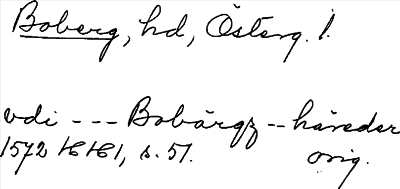 Boberg, hd, Österg. l.
vdi --- Bobärgz -- häreder
1572 16/6 61, s. 51. orig.